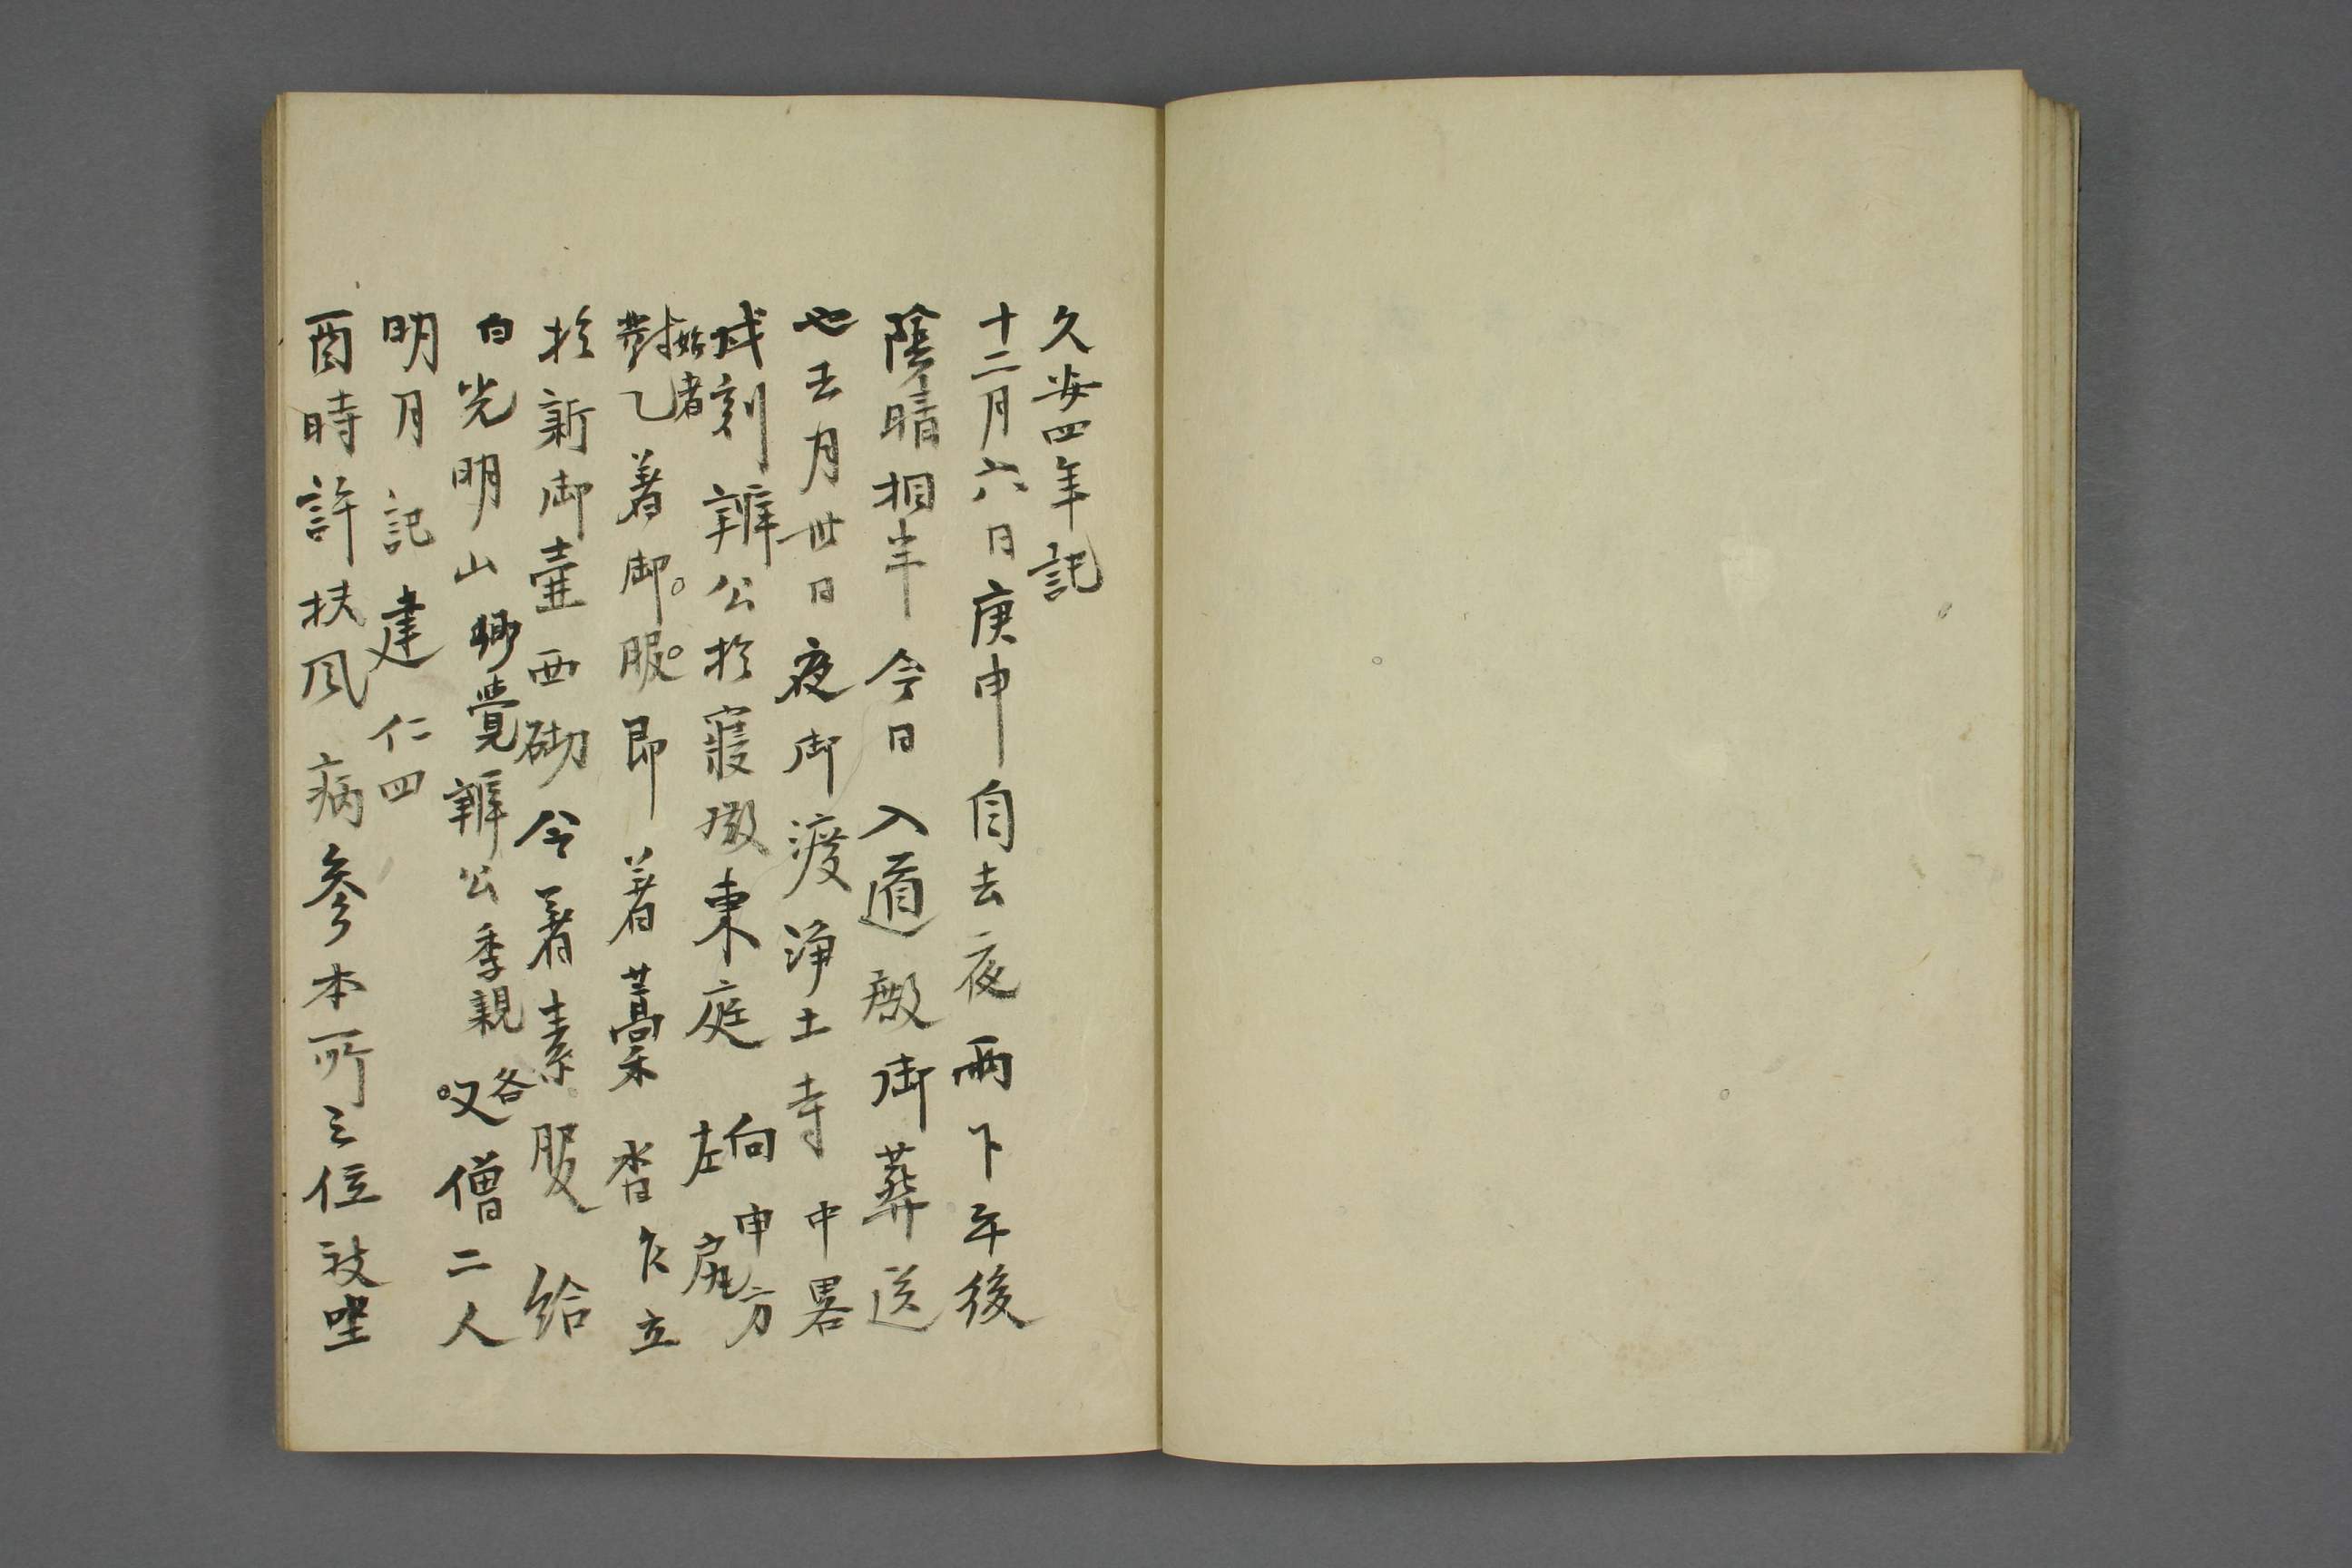 久安四年記
十二月六日庚申自去夜雨下午後
陰晴相半今日入道殿御葬送
也去月廿日夜御渡浄土寺中畧
戌刻辨公於寝殿東庭向申方左尻
始者對乙著御服即著藁沓乍立
於新御壷西砌令著素服給
自光明山卿覺辨公季親各又僧二人
明月記建仁四
酉時許扶風病参本所三位被坐